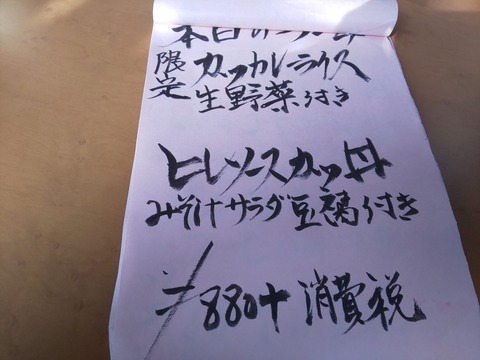 本日のランチ
限定 カツカレーライス
生野菜付き
ヒレソースカツ丼
みそ汁サラダ豆腐付き
¥880+消費税